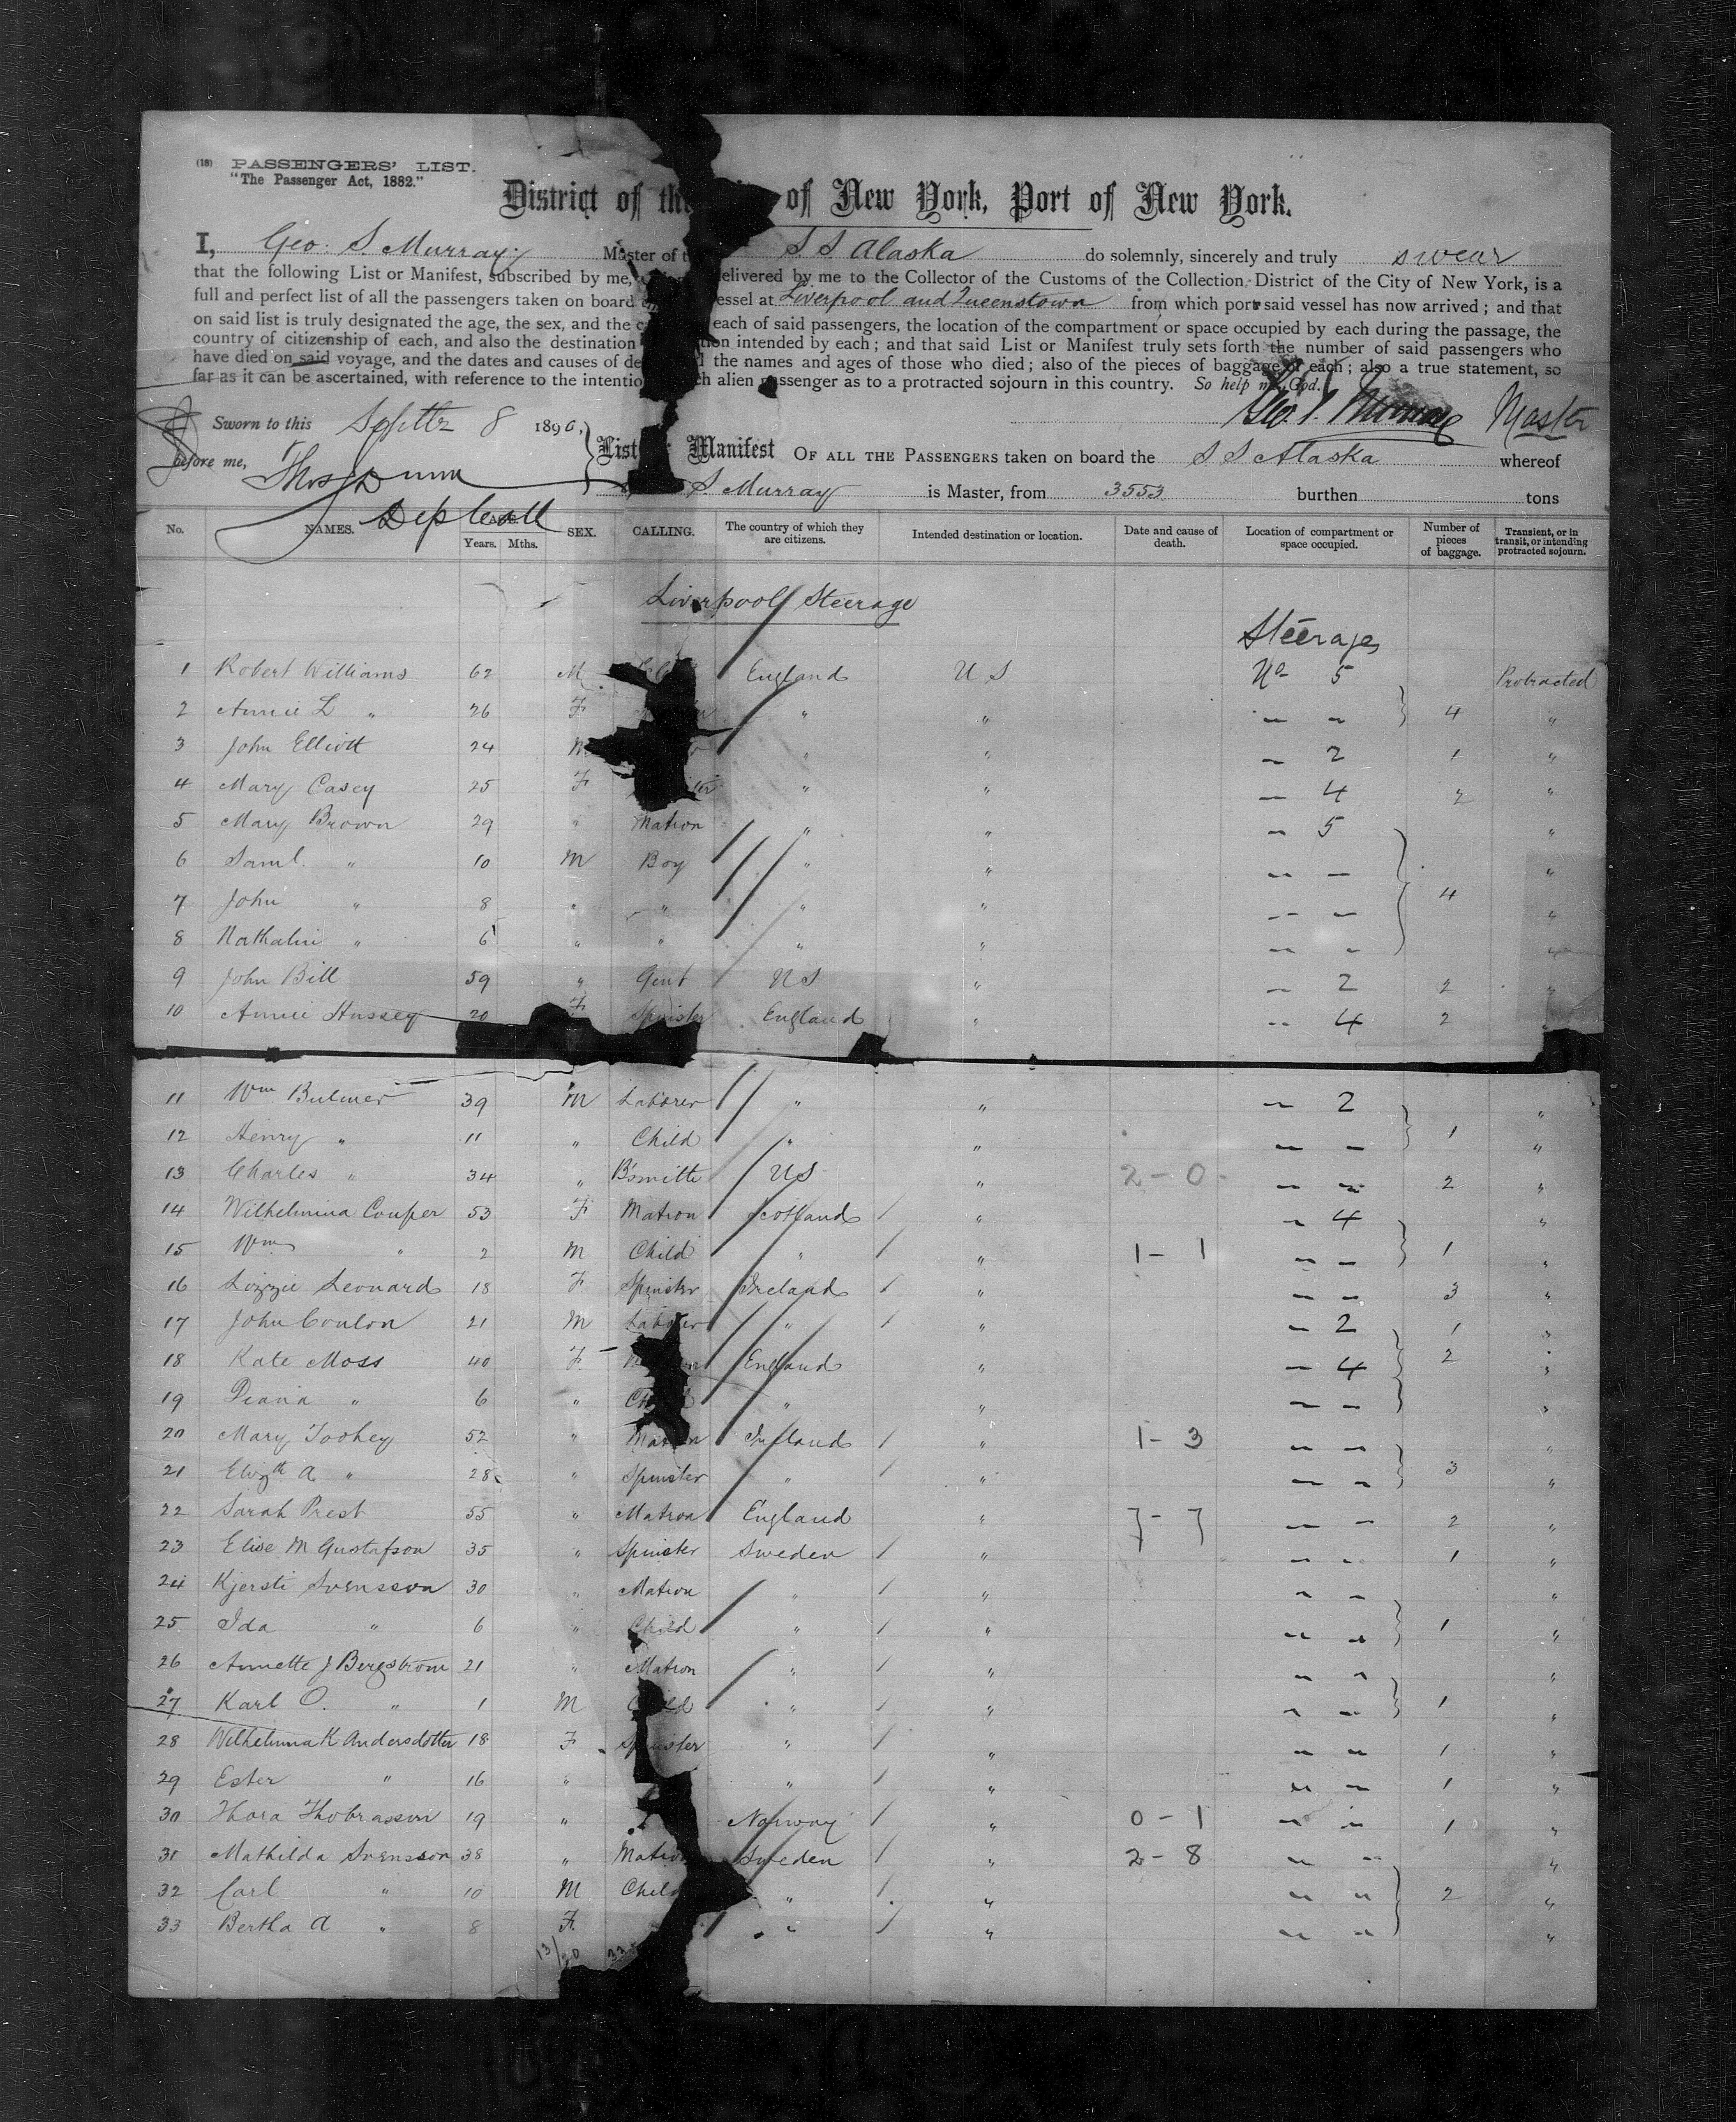 (18) PASSENGERS' LIST.
"The Passenger Act, 1882."
District of the of New York, Port of New York.
I, Geo. S. Murray Master of S S Alaska do solemnly, sincerely and truly swear
that the following List or Manifest, subscribed by me, delivered by me to the Collector of the Customs of the Collection District of the City of New York, is a
full and perfect list of all the passengers taken on board at Liverpool and Queenstown from which port said vessel has now arrived; and that
on said list is truly designated the age, the sex, and the each of said passengers, the location of the compartment or space occupied by each during the passage, the
country of citizenship of each, and also the destination intended by each; and that said List or Manifest truly sets forth the number of said passengers who
have died on said voyage, and the dates and causes of the names and ages of those who died; also of the pieces of baggage of each; also a true statement, so
far as it can be ascertained, with reference to the alien passenger as to a protracted sojourn in this country. So help me God.
Geo. S. Murray Master
Sworn to this Septbr 8 1890,
before me,
List Manifest OF ALL THE PASSENGERS taken on board the S S Alaska whereof
S. Murray is Master, from 3553 burthen tons
Dep Coll
No. NAMES. AGE. Years. Mths. SEX. CALLING. The country of which they are citizens. Intended destination or location. Date and cause of death. Location of compartment or space occupied. Number of pieces of baggage. Transient, or in transit, or intending protracted sojourn.
Liverpool Steerage
Steerage
1 Robert Williams 62 M England U S No 5 Protracted
2 Annie L " 26 F " " — — 4 "
3 John Elliott 24 M " " — 2 1 "
4 Mary Casey 25 F " " — 4 2 "
5 Mary Brown 29 " Matron " " — 5 "
6 Saml. " 10 M Boy " " — — "
7 John " 8 " " " " — — 4 "
8 " 6 " " " " — — "
9 John Bill 59 " Gent U S " — 2 2 "
10 Annie Hussey 20 F Spinster England " — 4 2 "
11 Wm Bulmer 39 M Laborer " " — 2 "
12 Henry " 11 " Child " " — — 1 "
13 Charles " 34 " B'smith U S " 2 - 0 — — 2 "
14 Wilhelmina Couper 53 F Matron Scotland / " — 4 "
15 Wm " 2 M Child " / " 1 - 1 — — 1 "
16 Lizzie Leonard 18 F Spinster Ireland / " — — 3 "
17 John Conlon 21 M Laborer " / " — 2 1 "
18 Kate Moss 40 F England " — 4 2 "
19 Diana " 6 " " " — — "
20 Mary Toohey 52 " Matron Ireland / " 1 - 3 — — "
21 Elizth A " 28 " Spinster " / " — — 3 "
22 Sarah Prest 55 " Matron England " 7 - 7 — — 2 "
23 Elise M Gustafson 35 " Spinster Sweden / " — — 1 "
24 Kjersti Svensson 30 " Matron " / " — — "
25 Ida " 6 " Child " / " — — 1 "
26 Annette J Bergstrom 21 " Matron " / " — — "
27 Karl O. " 1 M " / " — — 1 "
28 Wilhelmina K Andersdotter 18 F Spinster " / " — — 1 "
29 Ester " 16 " " / " — — 1 "
30 Thora Thobrasson 19 " Norway / " 0 - 1 — — 1 "
31 Mathilda Svensson 38 " Matron Sweden / " 2 - 8 — — "
32 Carl " 10 M Child " / " — — 2 "
33 Bertha A " 8 F " / " — — "
13/20 33